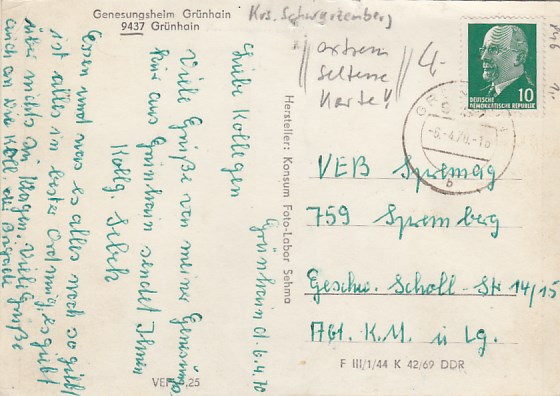 Genesungsheim Grünhain
9437 Grünhain
Krs. Schwarzenberg
extrem
seltene
Karte!
4,-
DEUTSCHE
DEMOKRATISCHE REPUBLIK
10
-6.-4.70.-16
b
Grünhain d. 6.4.70
Liebe Kollegen
Viele Grüße von meiner Genesungs
kur aus Grünhain sendet Ihnen
Kollg.
Essen und was es alles noch so gibt
ist alles in bester Ordnung, es gibt
aber nichts zu klagen. Viele Grüße
auch an die Koll.
VEB Spremag
759 Spremberg
Geschw. Scholl-Str 14/15
Abt. K.M. u Lg.
Hersteller: Konsum Foto-Labor Sehma
F III/1/44 K 42/69 DDR